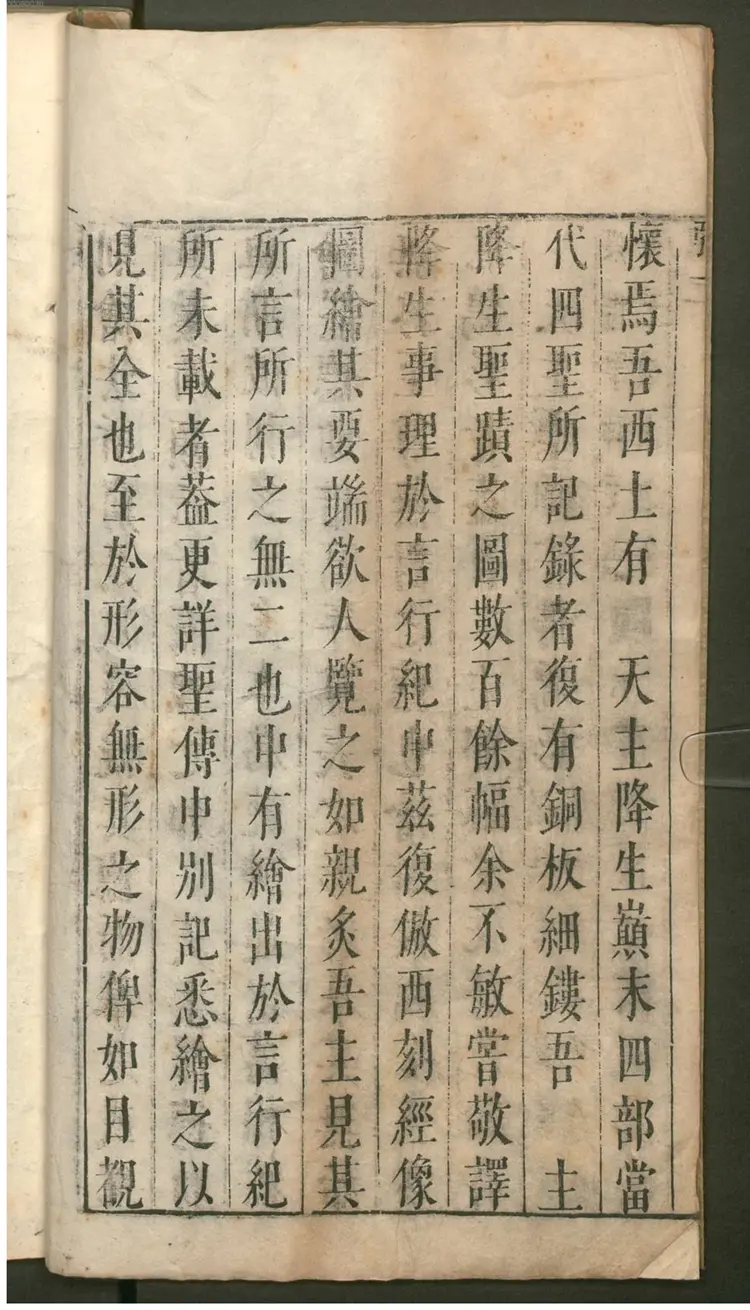 懷焉吾西土有　天主降生巔末四部當
代四聖所記錄者復有銅板細鏤吾　主
降生聖蹟之圖數百餘幅余不敏嘗敬譯
降生事理於言行紀中茲復倣西刻經像
圖繪其要端欲人覽之如親炙吾主見其
所言所行之無二也中有繪出於言行紀
所未載者葢更詳聖傳中別記悉繪之以
見其全也至於形容無形之物俾如目觀